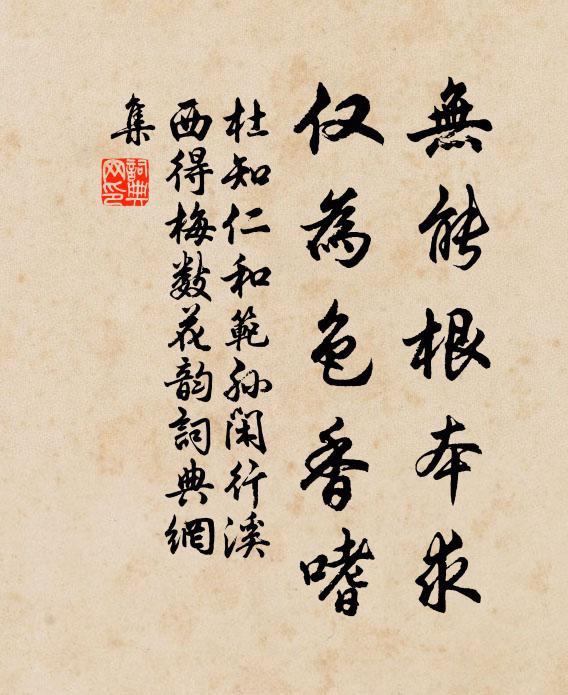 無能根本求
仅為色香嗜
杜知仁和範孙閑行溪
西得梅數花韵詞典網
集
詞典
网印